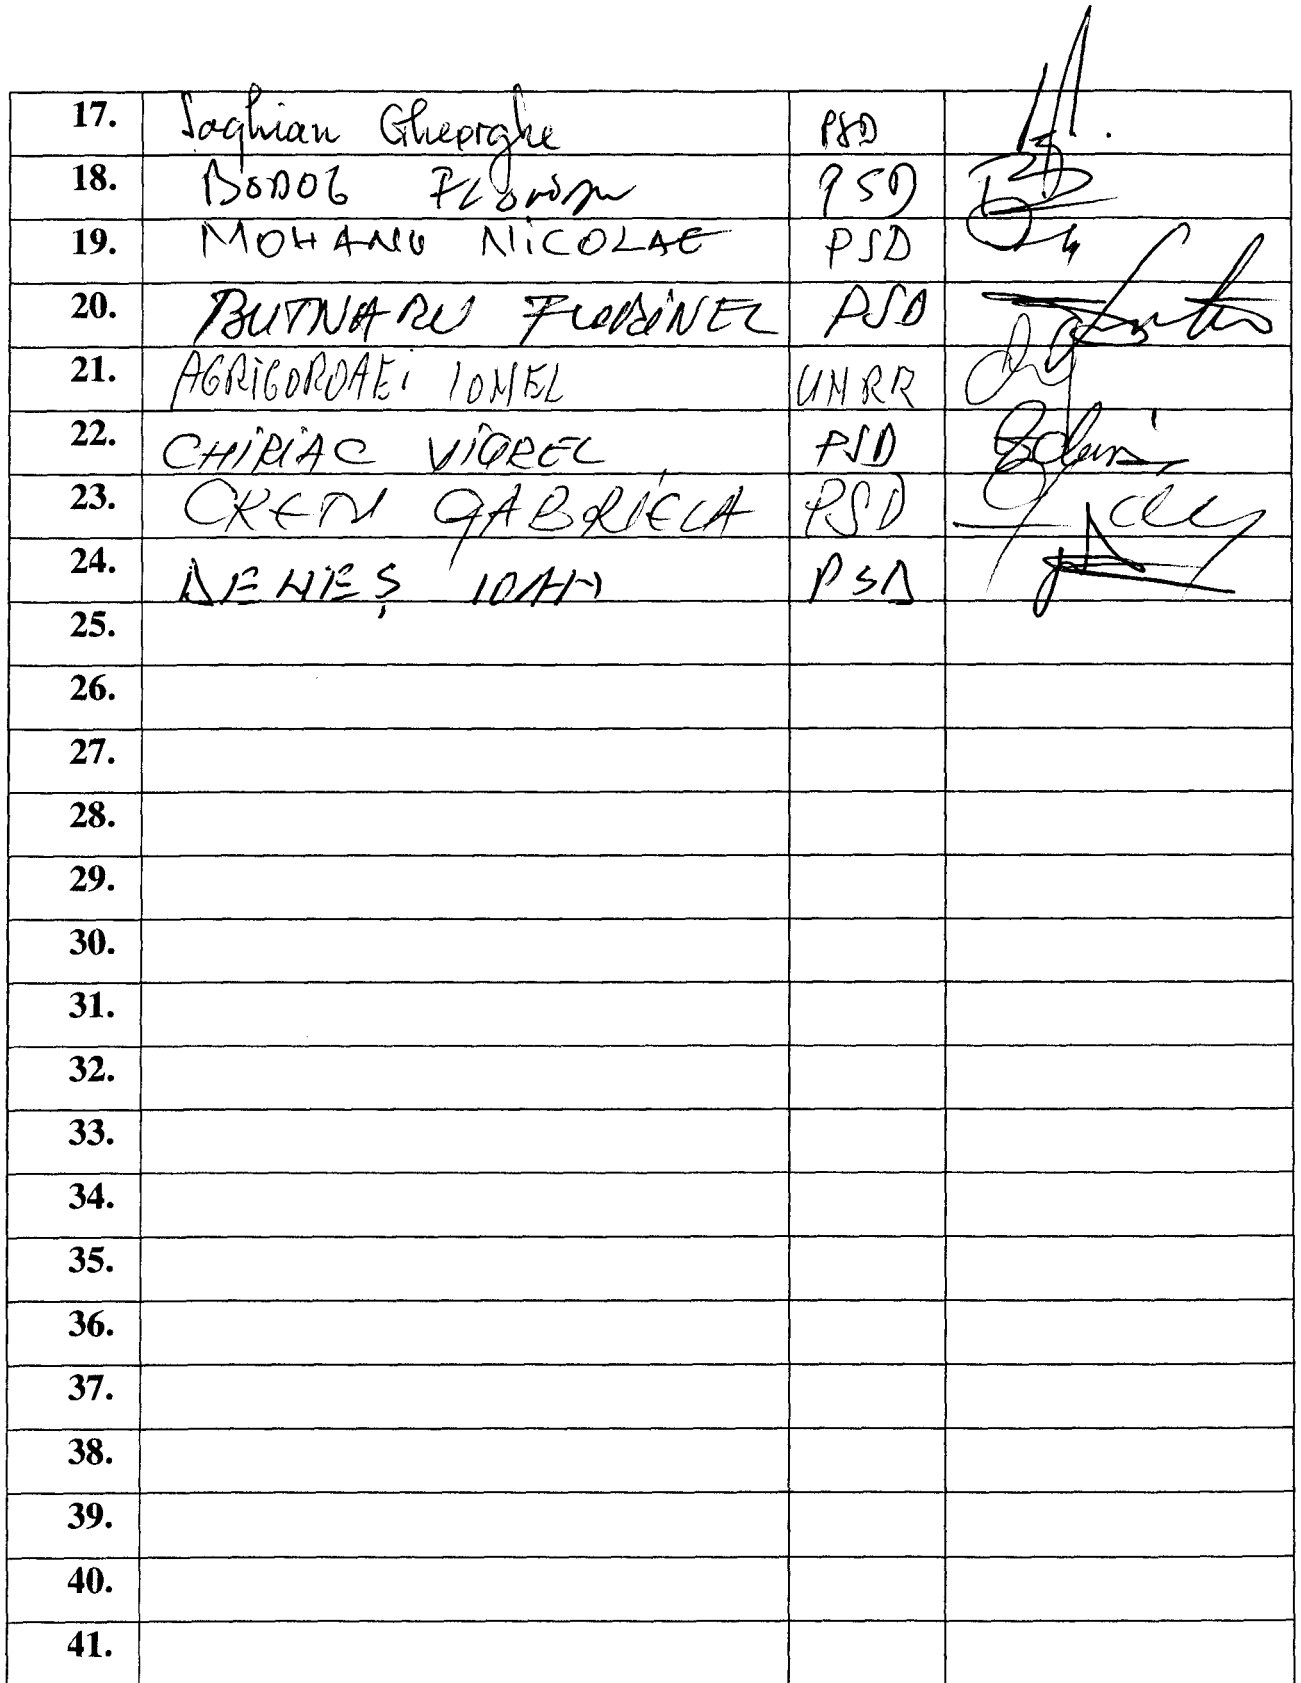 17. Saghian Gheorghe PSD
18. BODOG Florian PSD
19. MOHANU NICOLAE PSD
20. BUTNARU FLORINEL PSD
21. AGRIGOROAEi IONEL UNRR
22. CHIRIAC VIOREL PSD
23. CREȚU GABRIELA PSD
24. DENEȘ IOAN PSD
25.
26.
27.
28.
29.
30.
31.
32.
33.
34.
35.
36.
37.
38.
39.
40.
41.